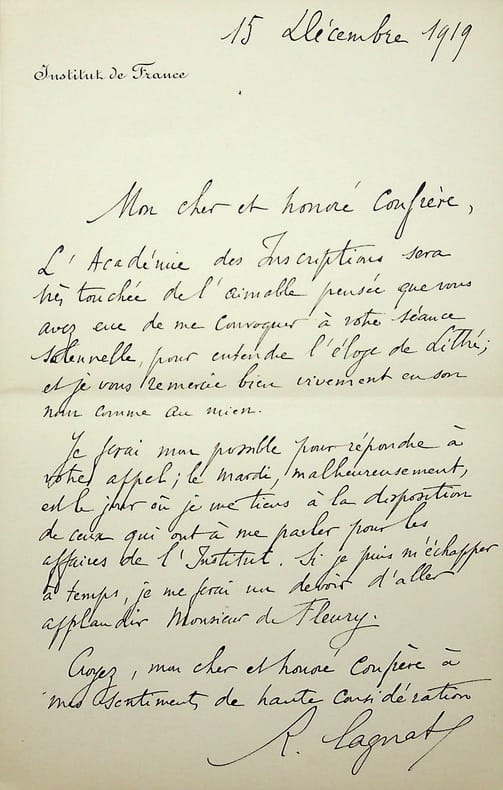 15 Décembre 1919
Institut de France
Mon cher et honoré Confrère,
L'Académie des Inscriptions sera
très touchée de l'aimable pensée que vous
avez eue de me convoquer à votre séance
solennelle, pour entendre l'éloge de Littré;
et je vous remercie bien vivement en son
nom comme au mien.
Je ferai mon possible pour répondre à
votre appel; le mardi, malheureusement,
est le jour où je me tiens à la disposition
de ceux qui ont à me parler pour les
affaires de l'Institut. Si je puis m'échapper
à temps, je me ferai un devoir d'aller
applaudir Monsieur de Fleury.
Croyez, mon cher et honoré confrère à
mes sentiments de haute considération
R. Cagnat